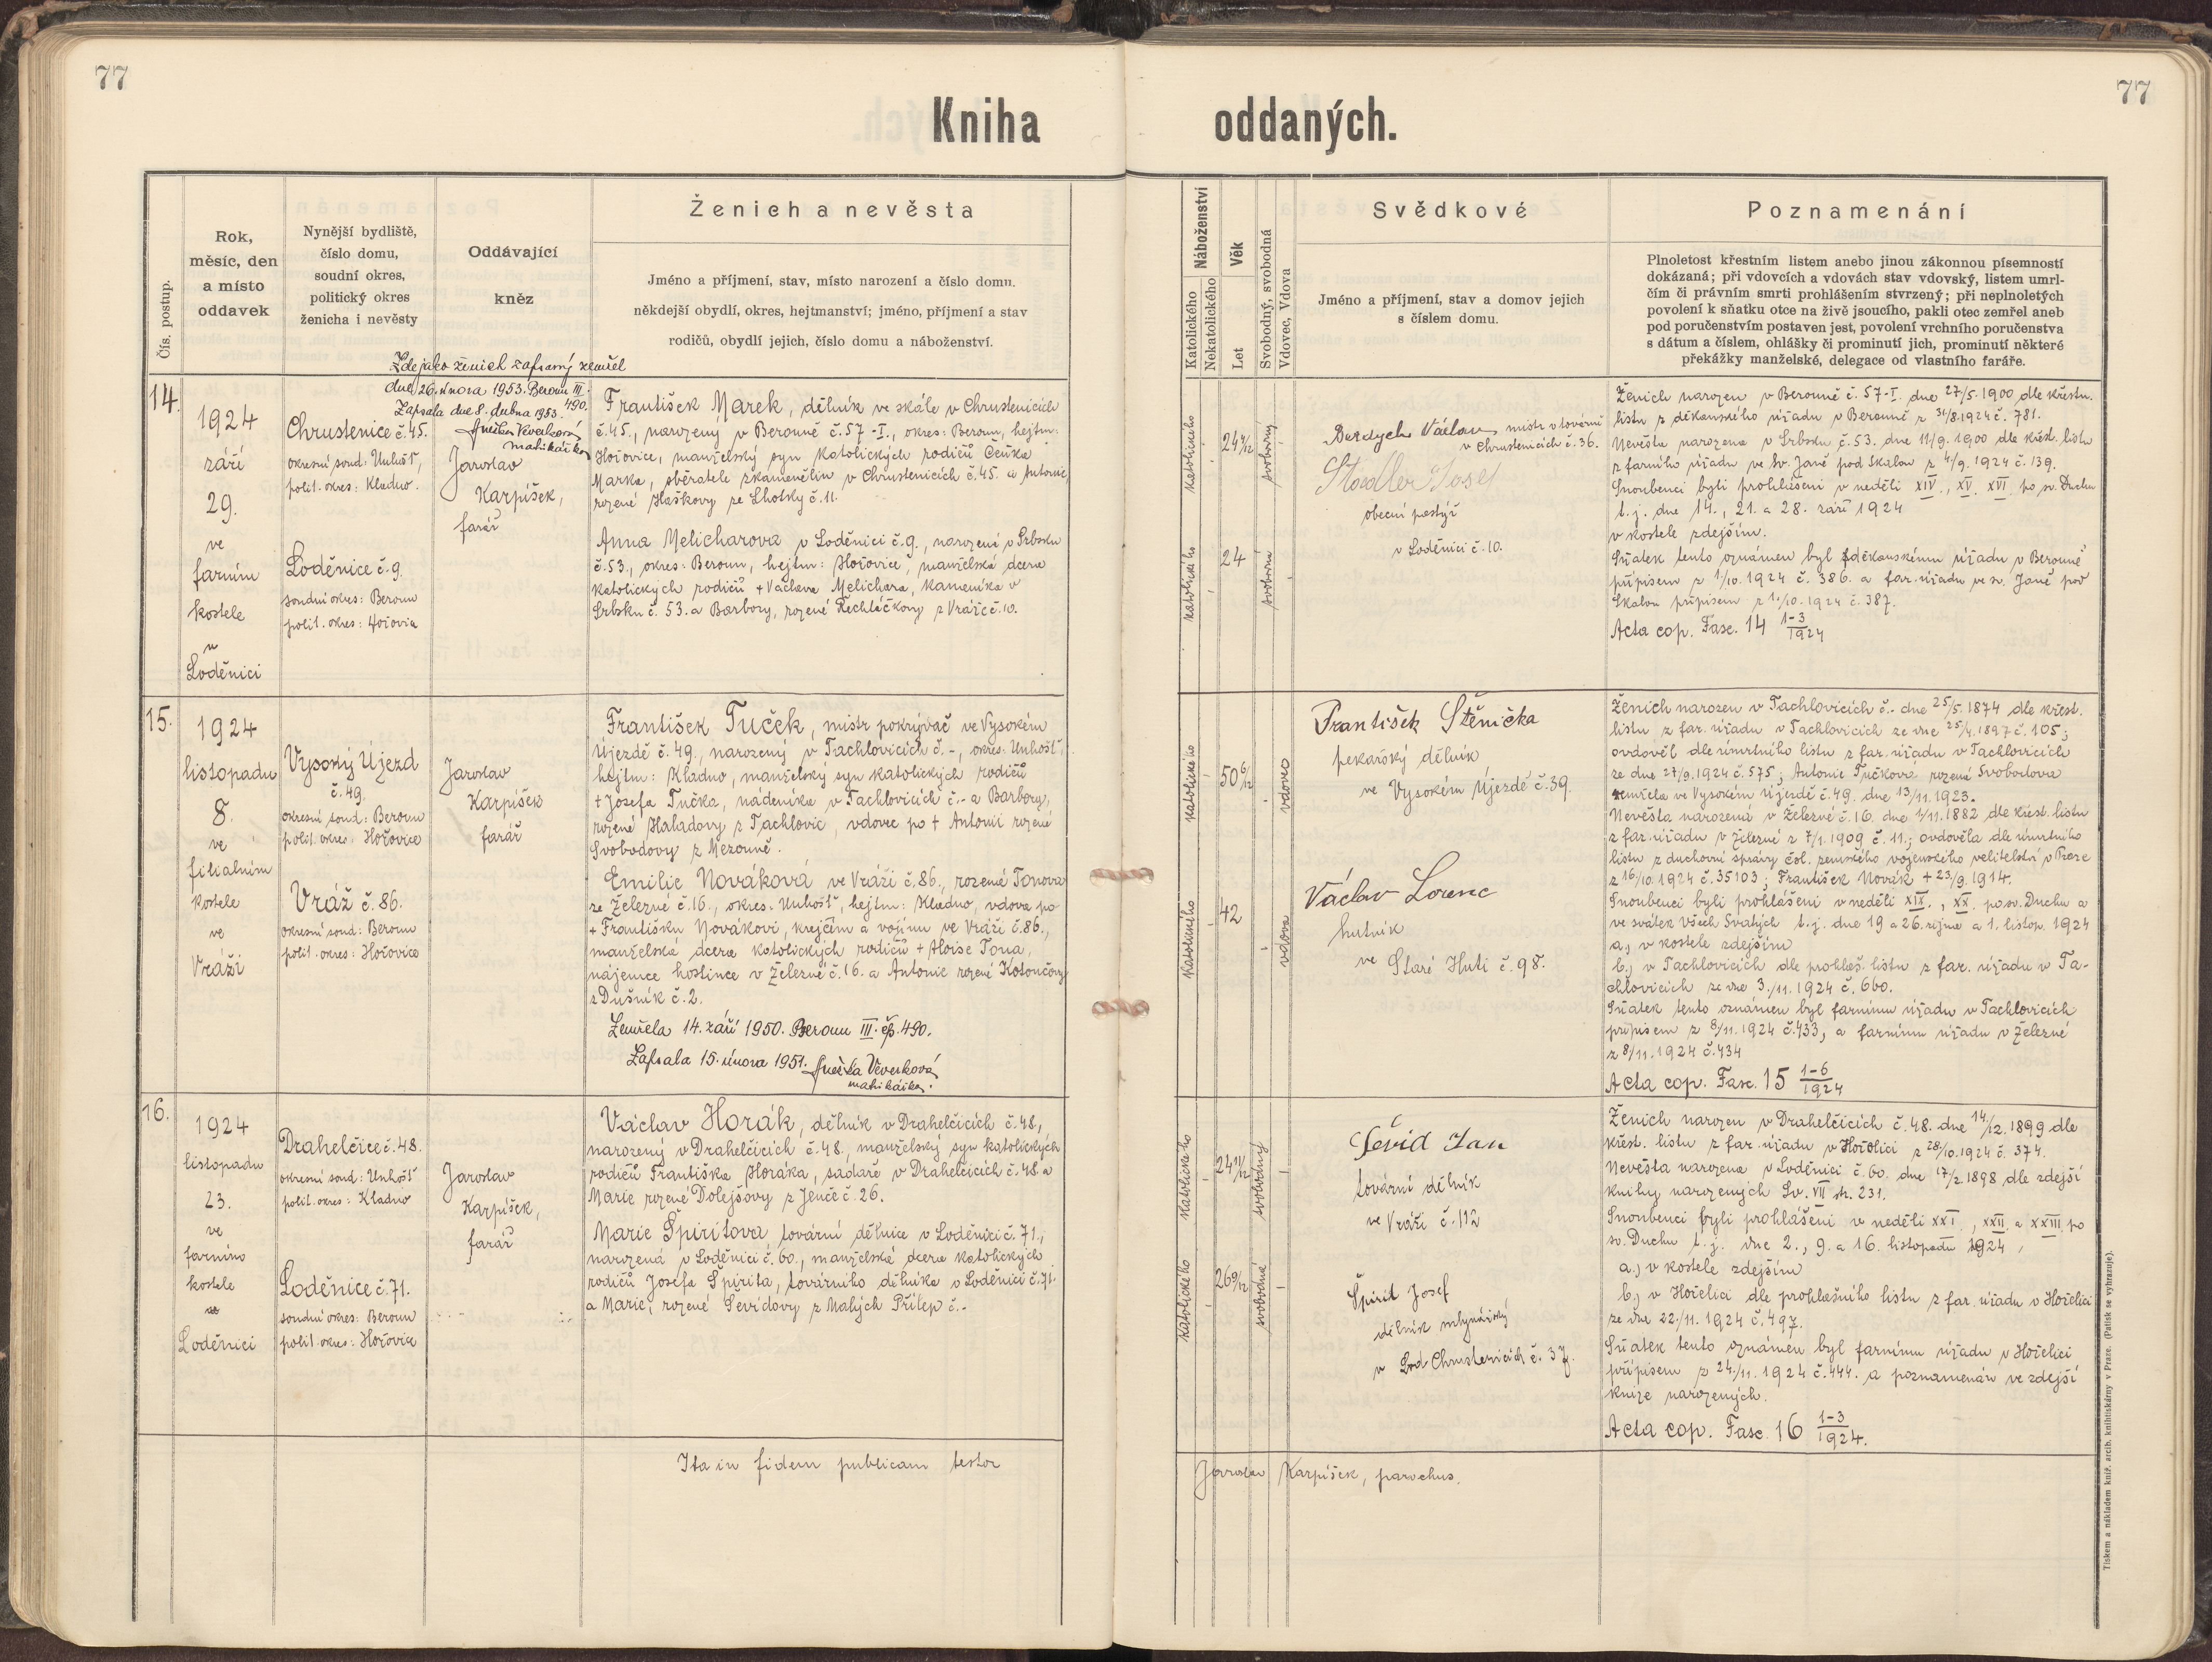 77
77
Kniha oddaných.
Čís. postup.
Rok,
měsíc, den
a místo
oddavek
Nynější bydliště,
číslo domu,
soudní okres,
politický okres
ženicha i nevěsty
Oddávající
kněz
Ženich a nevěsta
Jméno a příjmení, stav, místo narození a číslo domu.
někdejší obydlí, okres, hejtmanství; jméno, příjmení a stav
rodičů, obydlí jejich, číslo domu a náboženství.
Náboženství
Katolického
Nekatolického
Věk
Let
Svobodný, svobodná
Vdovec, Vdova
Svědkové
Jméno a příjmení, stav a domov jejich
s číslem domu.
Poznamenání
Plnoletost křestním listem anebo jinou zákonnou písemností
dokázaná; při vdovcích a vdovách stav vdovský, listem umrl-
čím či právním smrti prohlášením stvrzený; při neplnoletých
povolení k sňatku otce na živě jsoucího, pakli otec zemřel aneb
pod poručenstvím postaven jest, povolení vrchního poručenstva
s dátum a číslem, ohlášky či prominutí jich, prominutí některé
překážky manželské, delegace od vlastního faráře.
Zde jako ženich zapsaný zemřel
dne 26. února 1953. Beroun III.
490.
Zapsala dne 8. dubna 1953.
Anežka Veverková
matrikářka
14.
1924
září
29.
ve
farním
kostele
v
Loděnici
Chrustenice č. 45.
okresní soud: Unhošť,
polit. okres: Kladno.
Loděnice č. 9.
soudní okres: Beroun
polit. okres: Hořovice
Jaroslav
Karpíšek,
farář
František Marek, dělník ve skále v Chrustenicích
č. 45., narozený v Berouně č. 57-I., okres: Beroun, hejtm:
Hořovice, manželský syn katolických rodičů Čeňka
Marka, sběratele zkamenělin v Chrustenicích č. 45. a Antonie,
rozené Haškovy ze Lhotky č. 11.
Anna Melicharova v Loděnici č. 9., narozená v Srbsku
č. 53., okres: Beroun, hejtm: Hořovice, manželská dcera
katolických rodičů + Václava Melichara, kameníka v
Srbsku č. 53. a Barbory, rozené Rechláčkovy z Vráže č. 10.
katolického
katolického
24 4/12
24
svobodný
svobodná
Berdych Václav, mistr v továrně
v Chrustenicích č. 36.
Stadler Josef
obecní pastýř
v Loděnici č. 10.
Ženich narozen v Berouně č. 57-I. dne 27/5. 1900 dle křestn.
listu z děkanského úřadu v Berouně z 31/8. 1924 č. 781.
Nevěsta narozena v Srbsku č. 53. dne 11/9. 1900 dle křest. listu
z farního úřadu ve Sv. Janě pod Skalou z 4/9. 1924 č. 139.
Snoubenci byli prohlášeni v neděli XIV., XV. XVI. po sv. Duchu
t. j. dne 14., 21. a 28. září 1924
v kostele zdejším.
Sňatek tento oznámen byl děkanskému úřadu v Berouně
přípisem z 1/10. 1924 č. 386. a far. úřadu ve sv. Janě pod
Skalou přípisem z 1/10. 1924 č. 387.
Acta cop. Fasc. 14 1-3/1924
15.
1924
listopadu
8.
ve
filialním
kostele
ve
Vráži
Vysoký Újezd
č. 49.
okresní soud: Beroun
polit. okres: Hořovice
Vráž č. 86.
okresní soud: Beroun
polit. okres: Hořovice
Jaroslav
Karpíšek
farář
František Tuček, mistr pokrývač ve Vysokém
Újezdě č. 49., narozený v Tachlovicích č. -, okres: Unhošť,
hejtm: Kladno, manželský syn katolických rodičů
+ Josefa Tučka, nádeníka v Tachlovicích č. - a Barbory,
rozené Haladovy z Tachlovic, vdovec po + Antonii rozené
Svobodovy z Mezouně.
Emilie Nováková ve Vráži č. 86., rozená Tonova
ze Železné č. 16., okres. Unhošť, hejtm: Kladno, vdova po
+ Františku Novákovi, krejčím a vojínu ve Vráži č. 86.,
manželská dcera katolických rodičů + Aloise Tona,
nájemce hostince v Železné č. 16. a Antonie rozené Kotončovy
z Dušník č. 2.
Zemřela 14. září 1950. Beroun III. čp. 490.
Zapsala 15. února 1951. Anežka Veverková
matrikářka.
katolického
katolického
50 6/12
42
vdovec
vdova
František Stěnička
pekařský dělník
ve Vysokém Újezdě č. 39.
Václav Lorenc
hutník
ve Staré Huti č. 98.
Ženich narozen v Tachlovicích č. - dne 25/5. 1874 dle křest.
listu z far. úřadu v Tachlovicích ze dne 25/4. 1897 č. 105;
ovdověl dle úmrtního listu z far. úřadu v Tachlovicích
ze dne 27/9. 1924 č. 575; Antonie Tučkova rozená Svobodova
zemřela ve Vysokém Újezdě č. 49. dne 13/11. 1923.
Nevěsta narozená v Železné č. 16. dne 1/11. 1882 dle křest. listu
z far. úřadu v Železné z 7/1. 1909 č. 11.; ovdověla dle úmrtního
listu z duchovní správy čsl. zemského vojenského velitelství v Praze
z 16/10. 1924 č. 35103; František Novák + 23/9. 1914.
Snoubenci byli prohlášeni v neděli XIX., XX. po sv. Duchu a
ve svátek Všech Svatých t. j. dne 19 a 26. října a 1. listop. 1924
a.) v kostele zdejším
b.) v Tachlovicích dle prohlaš. listu z far. úřadu v Ta-
chlovicích ze dne 3./11. 1924 č. 660.
Sňatek tento oznámen byl farnímu úřadu v Tachlovicích
přípisem z 8/11. 1924 č. 433, a farnímu úřadu v Železné
z 8/11. 1924 č. 434
Acta cop. Fasc. 15 1-6/1924
16.
1924
listopadu
23.
ve
farním
kostele
v
Loděnici
Drahelčice č. 48.
okresní soud: Unhošť
polit. okres: Kladno
Loděnice č. 71.
soudní okres: Beroun
polit. okres: Hořovice
Jaroslav
Karpíšek,
farář
Václav Horák, dělník v Drahelčicích č. 48,
narozený v Drahelčicích č. 48., manželský syn katolických
rodičů Františka Horáka, sadaře v Drahelčicích č. 48 a
Marie rozené Dolejšovy z Jenče č. 26.
Marie Špiritova, tovární dělnice v Loděnici č. 71.,
narozená v Loděnici č. 60., manželská dcera katolických
rodičů Josefa Špirita, továrního dělníka v Loděnici č. 71.
a Marie, rozené Ševidovy z Malých Přílep č. -
katolického
katolického
24 11/12
26 9/12
svobodný
svobodná
Ševid Jan
tovární dělník
ve Vráži č. 112
Špirit Josef
dělník mlynářský
v Lod Chrustenicích č. 37.
Ženich narozen v Drahelčicích č. 48. dne 14/12. 1899 dle
křest. listu z far. úřadu v Hořelici z 28/10. 1924 č. 374.
Nevěsta narozena v Loděnici č. 60. dne 17/2. 1898 dle zdejší
knihy narozených Sv. VII str. 231.
Snoubenci byli prohlášeni v neděli XXI., XXII. a XXIII po
sv. Duchu t. j. dne 2., 9. a 16. listopadu 1924,
a.) v kostele zdejším
b.) v Hořelici dle prohlašního listu z far. úřadu v Hořelici
ze dne 22./11. 1924 č. 497.
Sňatek tento oznámen byl farnímu úřadu v Hořelici
přípisem z 24./11. 1924 č. 444. a poznamenán ve zdejší
knize narozených.
Acta cop. Fasc. 16 1-3/1924.
Ita in fidem publicam testor
Jaroslav Karpíšek, parochus.
Tiskem a nákladem kníž. arcib. knihtiskárny v Praze. (Patisk se vyhrazuje).